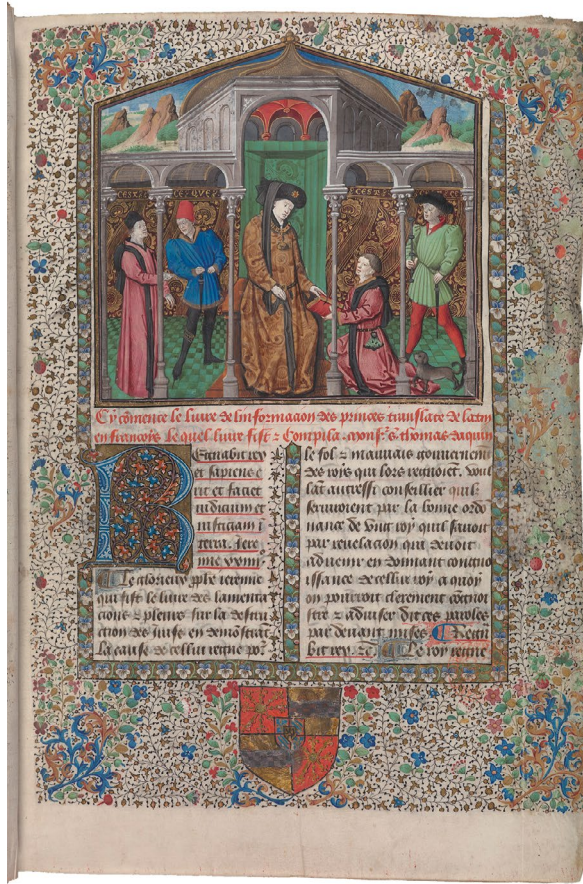 C'EST
CE QUE
C'EST
Cy cōmence le liure de linformacion des princes translate de latin
en francoys le quel liure fist ⁊ Compila monsʳ S. thomas daquin
REgnabit rex
et sapiens e
rit et faciet
iudicium et
iusticiam ī
terra. Jere
mie
Le glorieux pphe ieremie
qui fist le liure des lamenta
cions ⁊ pleurs sur la destru
ction des iuifz en demōstrāt
la cause de cellui regne por
le fol ⁊ mauuais gouuernem̄t
des roys qui lors regnoiēt. voul
lāt aucressi conseillier quilz
feussent par la bonne ordo
nance de vng roy quil sauoit
par reuelacion qui deuoit
aduenir en donnant congno
issance de cellui roy a quoy
on pourroit clerement cōgnoi
stre ⁊ aduiser dit ces paroles
par deuant mises Regna
bit rex. ⁊c. Le roy regne